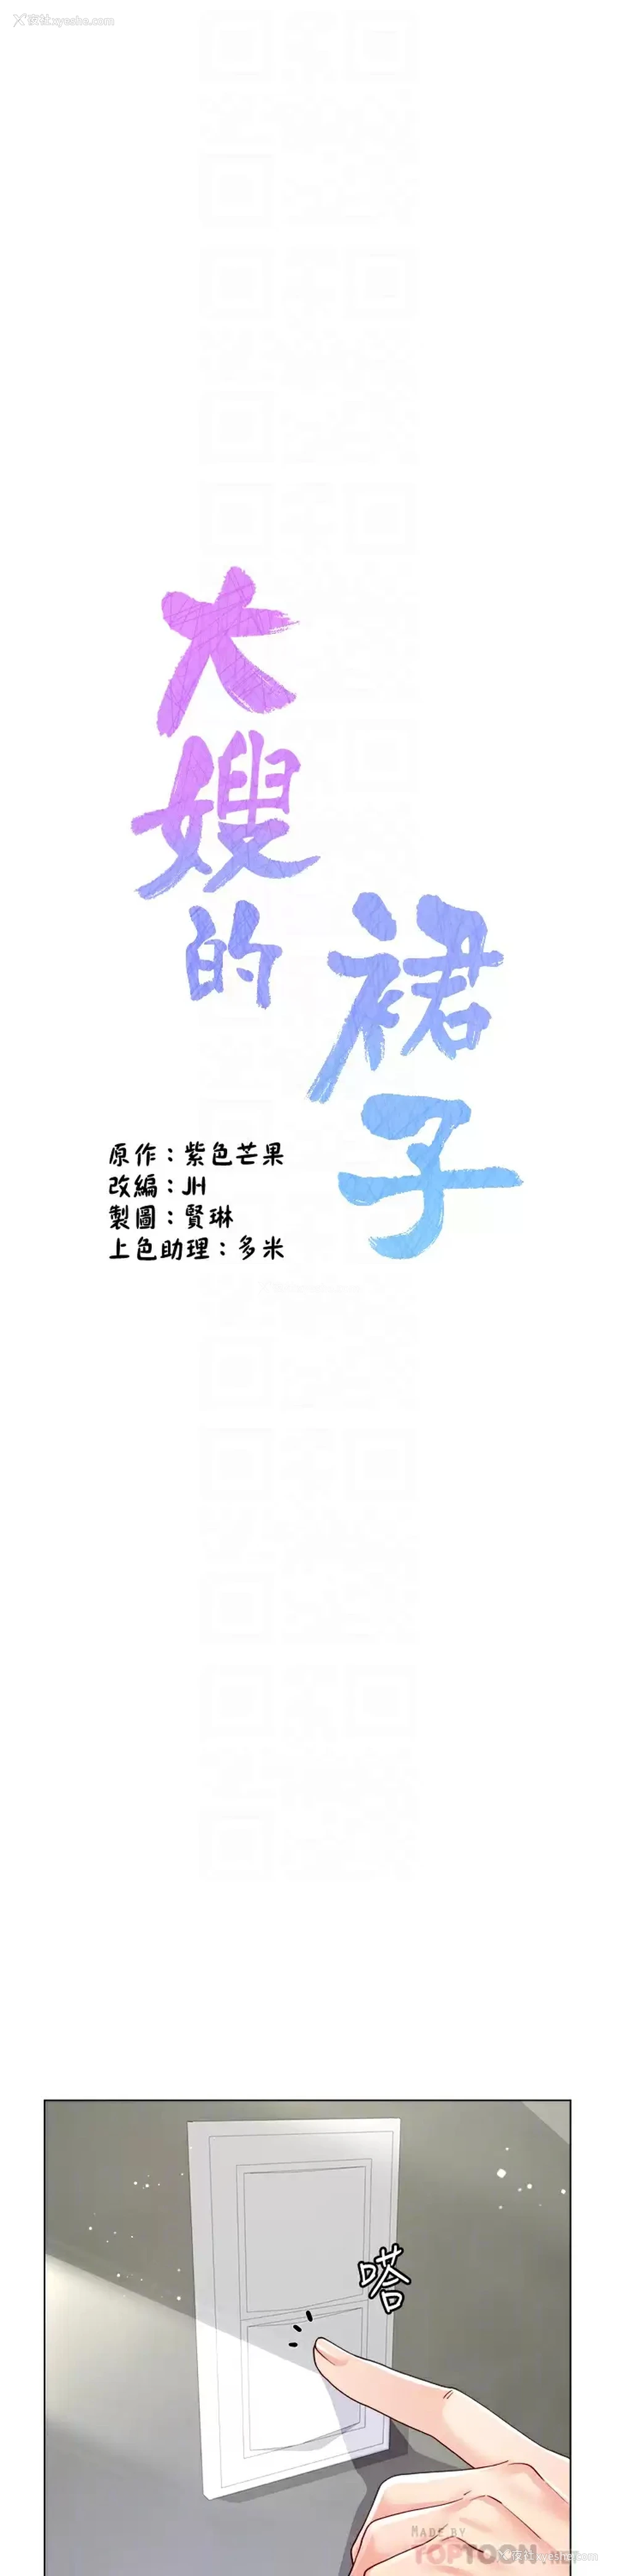 夜社xyeshe.com
大嫂的
裙子
原作：紫色芒果
改編：JH
製圖：賢琳
上色助理：多米
嗒
MADE BY
TOPTOON.NET
夜社xyeshe.com